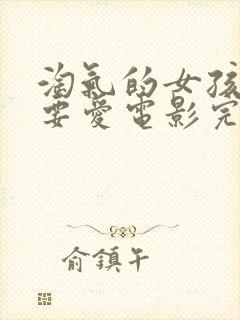 淘氣的女孩
要愛電影完
俞鎮午